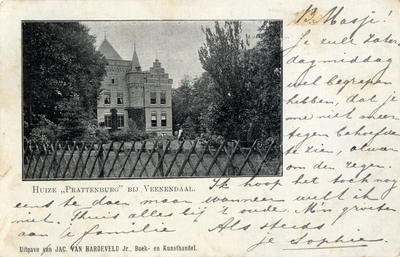 B. Masje!
Je zult Zater-
dagmiddag
wel begrepen
hebben, dat je
me niet meer
tegen behoefde
te zien, alwar
om den regen.
HUIZE „PRATTENBURG” BIJ VEENENDAAL.
Ik hoop het toch nog
eens te doen maar wanneer weet ik
niet. Thuis alles bij 't oude. Mn groeten
aan de familie Als steeds
je Sophie.
Uitgave van JAC. VAN HARDEVELD Jr., Boek- en Kunsthandel.